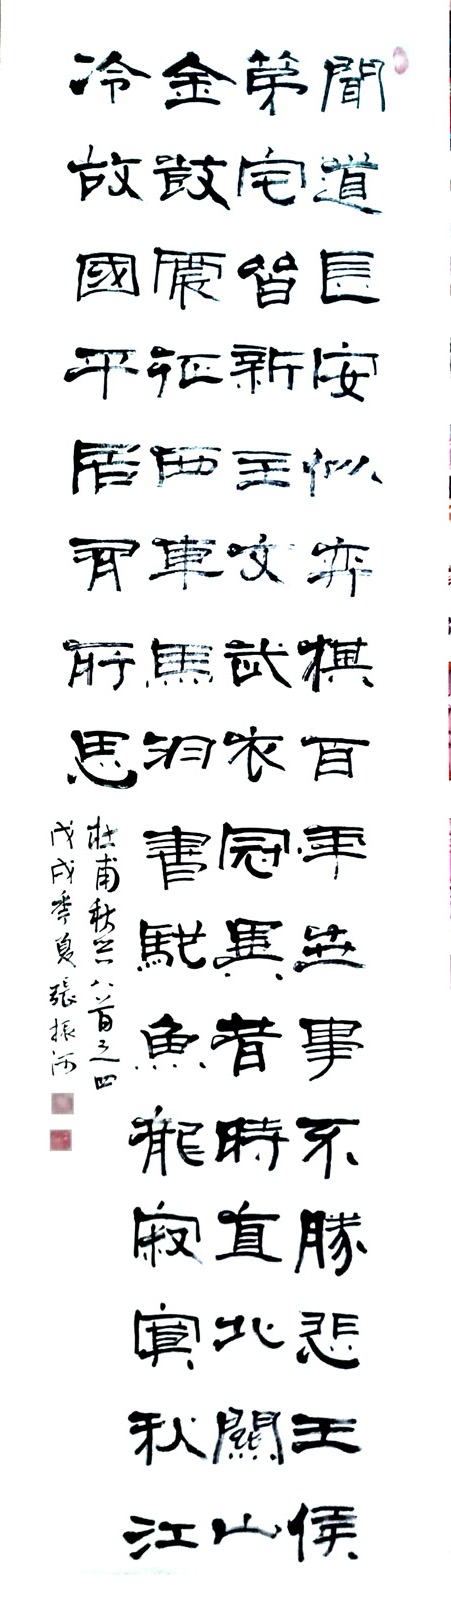 聞道長安似弈棋百年世事不勝悲王侯
第宅皆新主文武衣冠異昔時直北關山
金鼓震征西車馬羽書馳魚龍寂寞秋江
冷故國平居有所思
杜甫秋兴八首之四
戊戌季夏張振河